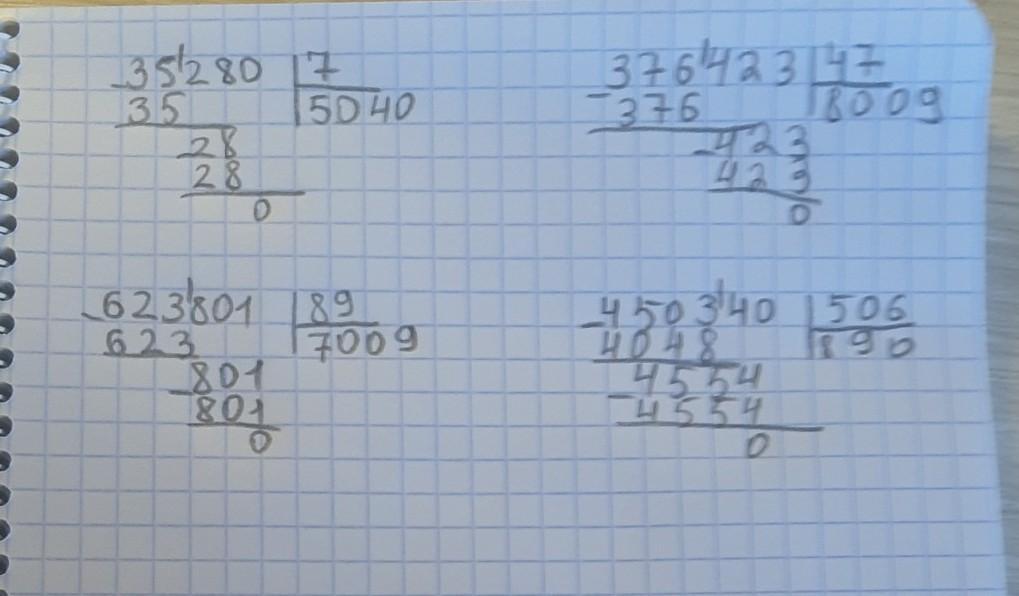 35'280 7
- 35 5040
- 28
28
0
376'423 47
- 376 8009
- 423
423
0
- 623'801 89
623 7009
- 801
801
0
- 4503'40 506
4048 890
- 4554
4554
0